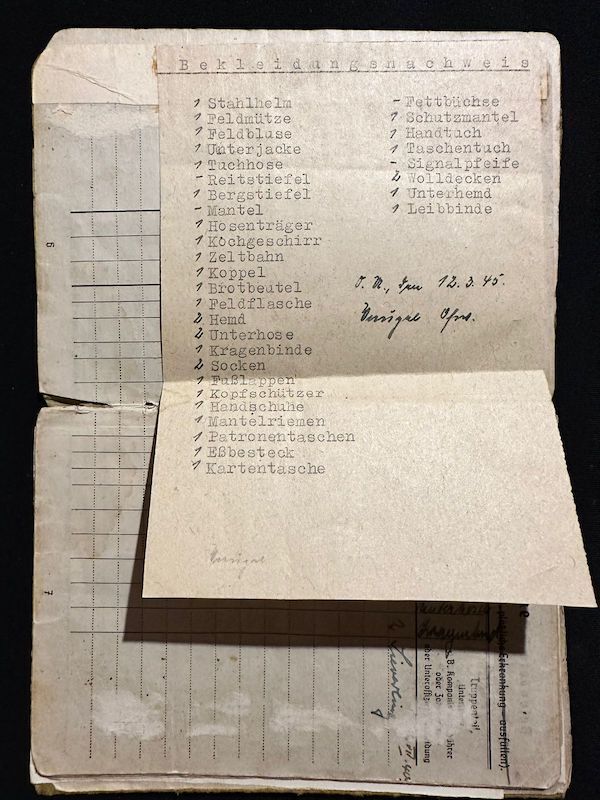 Bekleidungsnachweis
1 Stahlhelm
1 Feldmütze
1 Feldbluse
1 Unterjacke
1 Tuchhose
- Reitstiefel
1 Bergstiefel
- Mantel
1 Hosenträger
1 Kochgeschirr
1 Zeltbahn
1 Koppel
1 Brotbeutel
1 Feldflasche
2 Hemd
2 Unterhose
1 Kragenbinde
2 Socken
1 Fußlappen
1 Kopfschützer
1 Handschuhe
1 Mantelriemen
1 Patronentaschen
1 Eßbesteck
1 Kartentasche
- Fettbüchse
1 Schutzmantel
1 Handtuch
1 Taschentuch
- Signalpfeife
2 Wolldecken
1 Unterhemd
1 Leibbinde
O. U., 12.3.45.
6
7
Truppenteil,
oder
ausfüllen).